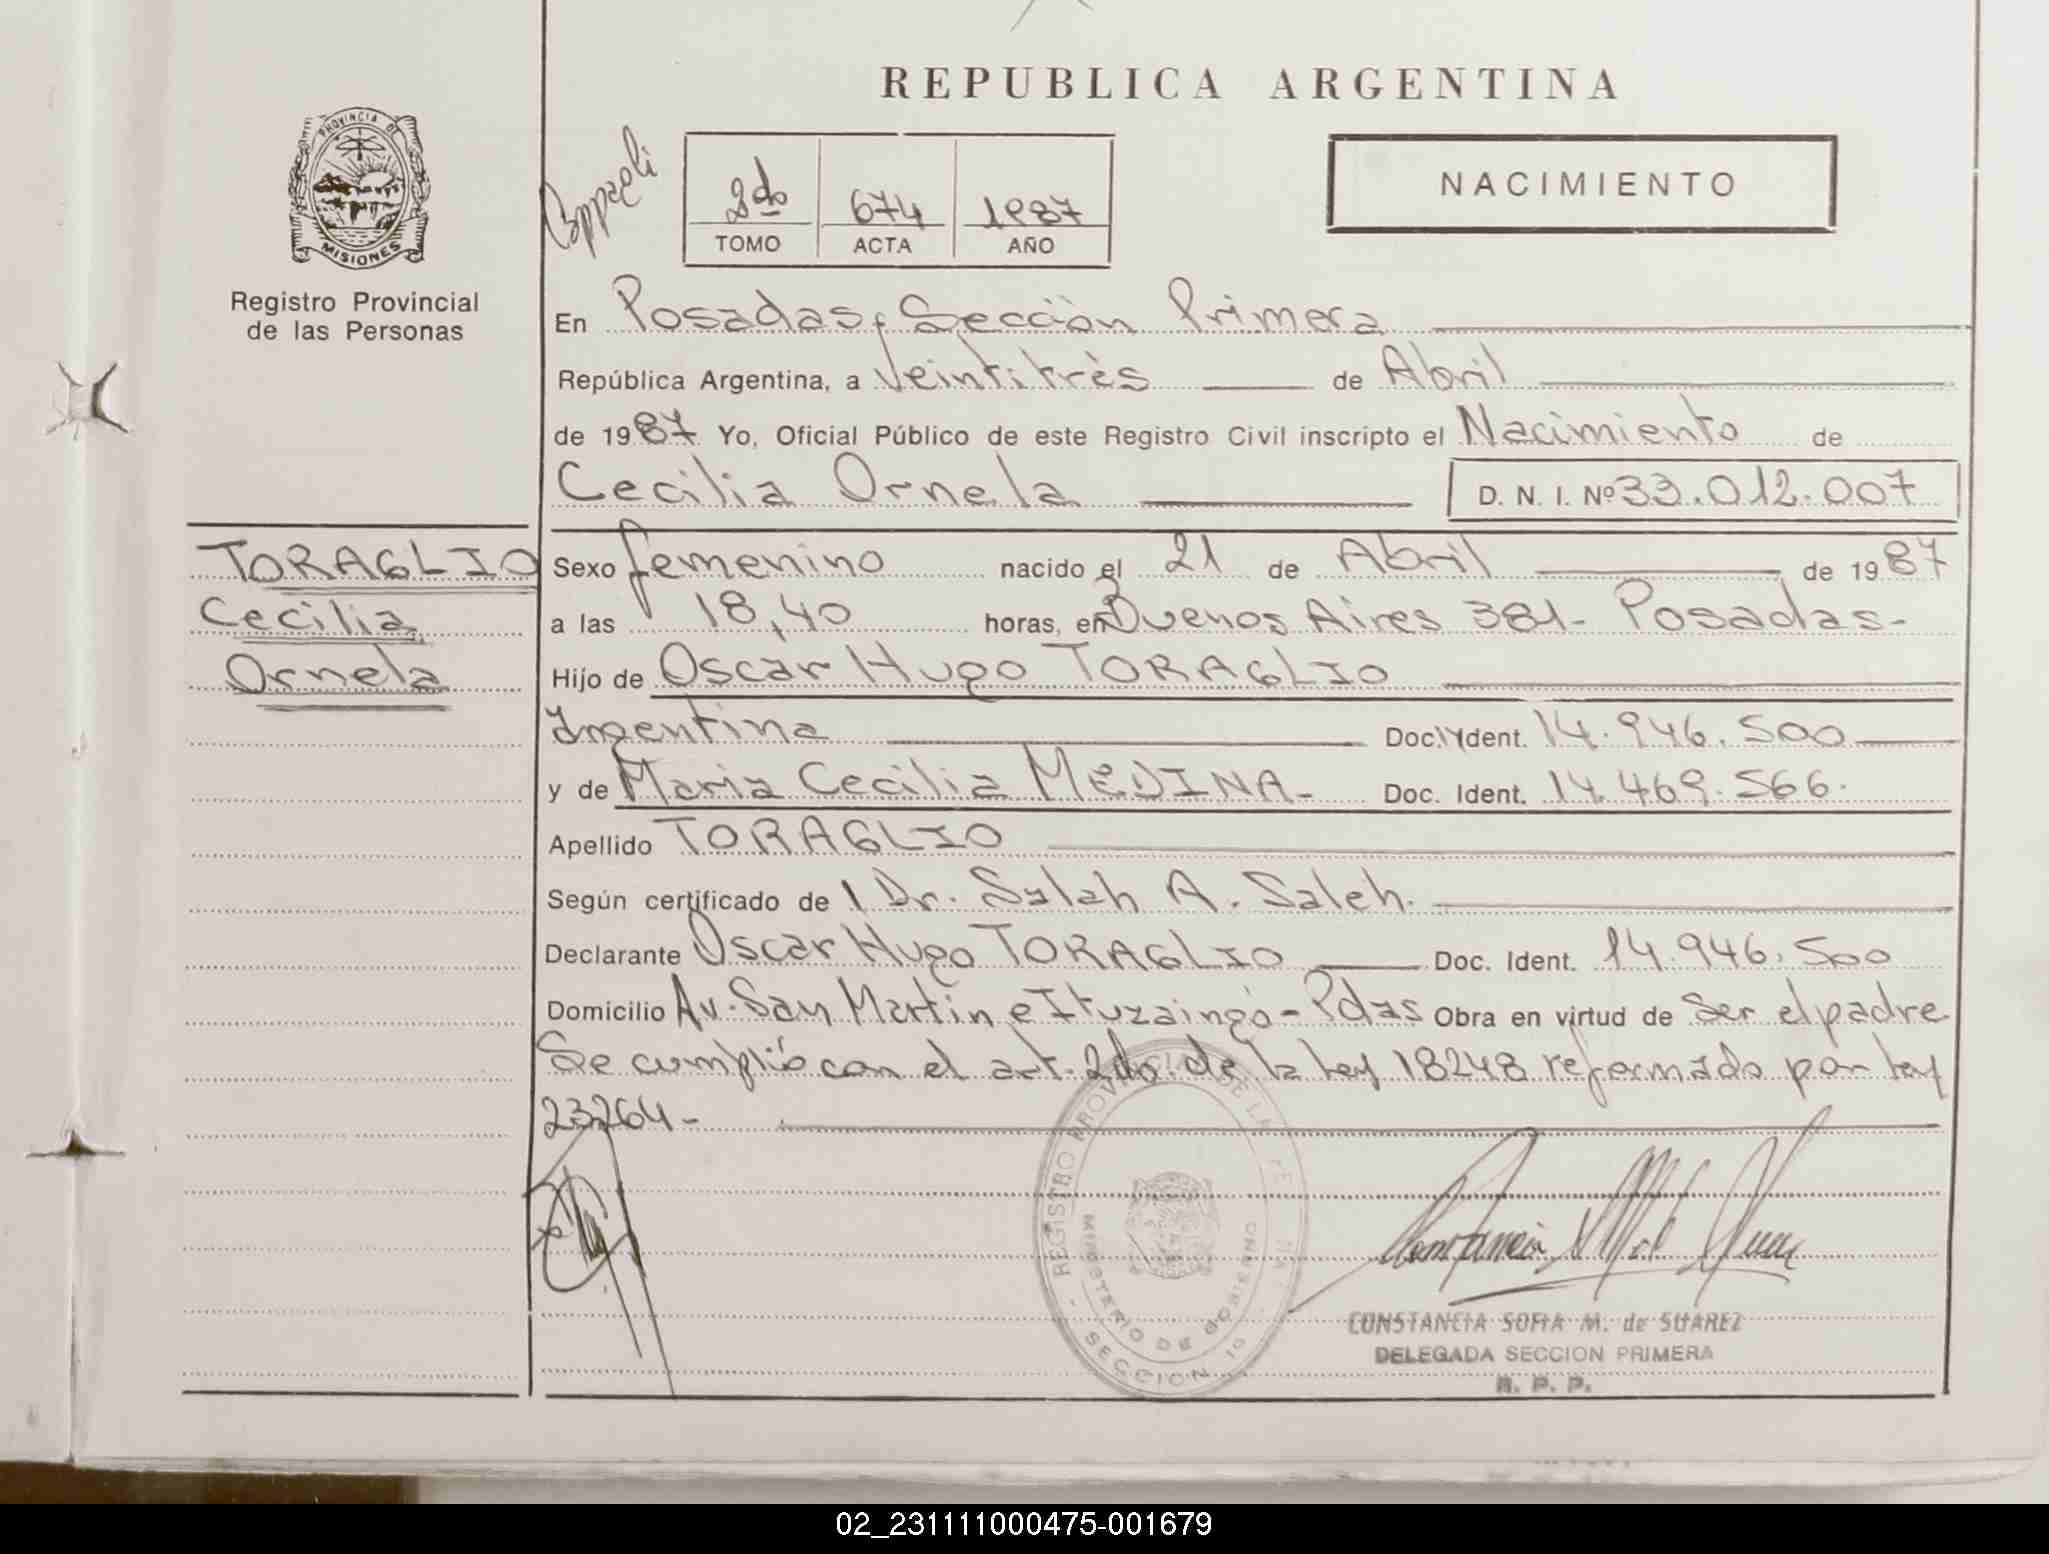 REPUBLICA ARGENTINA
PROVINCIA DE
MISIONES
Registro Provincial
de las Personas
2do 674 1987
TOMO ACTA AÑO
NACIMIENTO
En Posadas, Sección Primera
República Argentina, a Veintitrès de Abril
de 1987 Yo, Oficial Público de este Registro Civil inscripto el Nacimiento de
Cecilia Ornela D. N. I. Nº 33.012.007
TORAGLIO
Cecilia
Ornela
Sexo femenino nacido el 21 de Abril de 1987
a las 18,40 horas, en Buenos Aires 381- Posadas-
Hijo de Oscar Hugo TORAGLIO
Argentina Doc. Ident. 14.946.500
y de Maria Cecilia MEDINA- Doc. Ident. 14.469.566.
Apellido TORAGLIO
Según certificado de Dr. Salah A. Saleh.
Declarante Oscar Hugo TORAGLIO Doc. Ident. 14.946.500
Domicilio Av. San Martin e Ituzaingó- Pdas Obra en virtud de Ser el padre
Se cumplió con el art. 2do. de la Ley 18248 reformado por ley
23264-
REGISTRO PROVINCIAL DE LAS PERSONAS
MINISTERIO DE GOBIERNO
SECCION 1º
CONSTANCIA SOFIA M. de SUAREZ
DELEGADA SECCION PRIMERA
R. P. P.
02_231111000475-001679